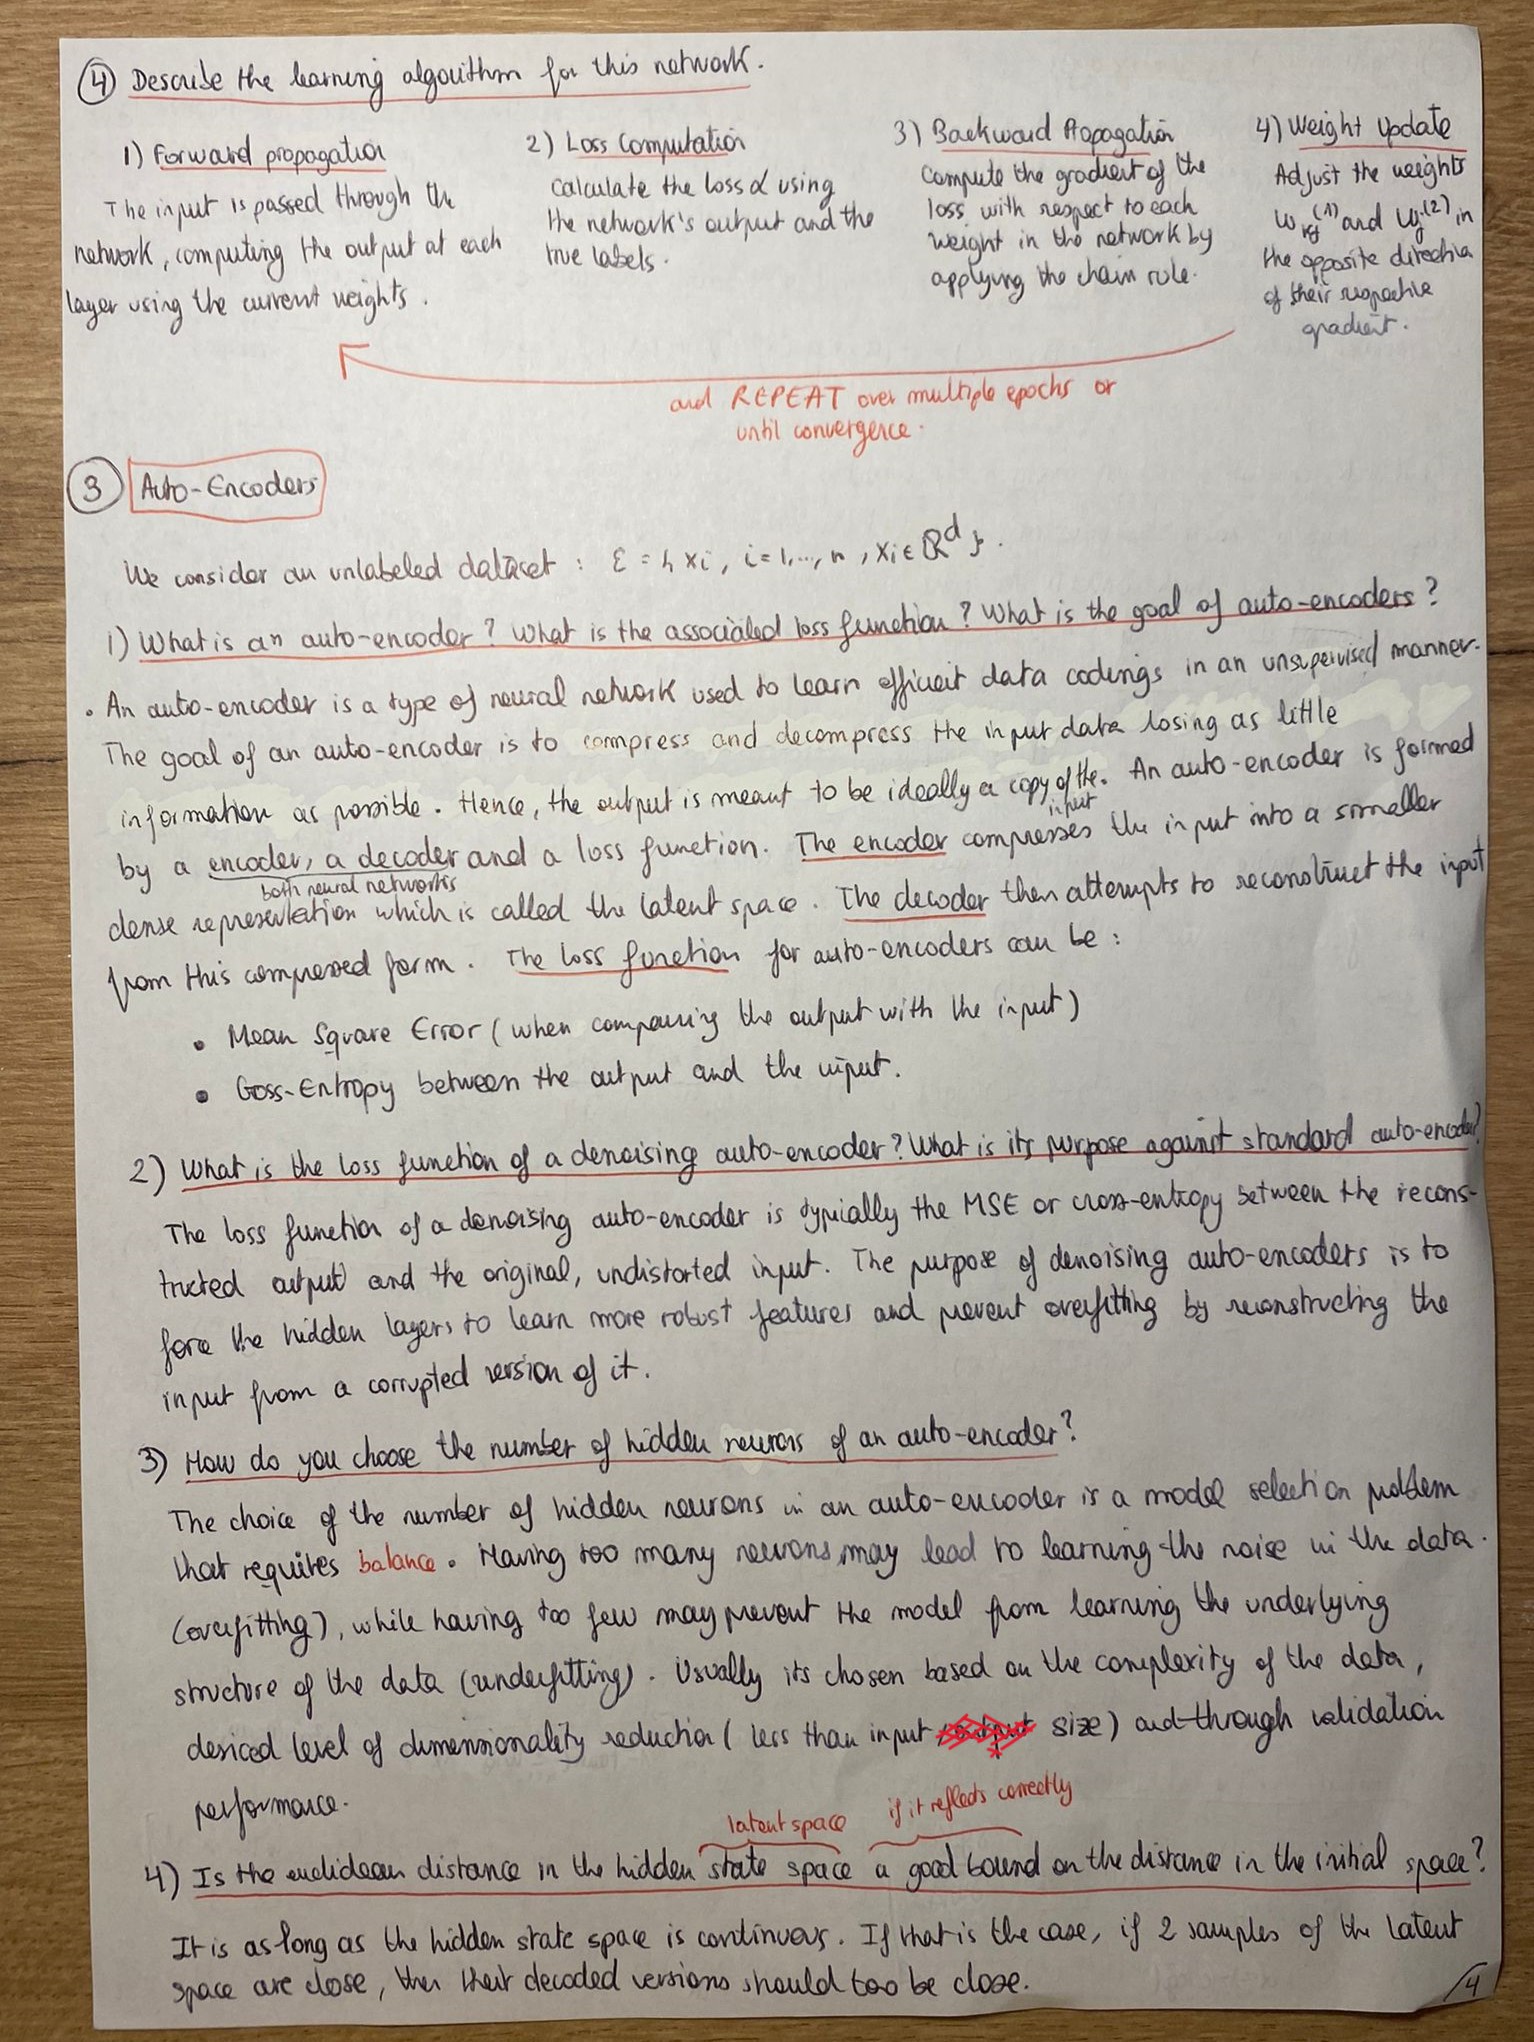 ④ Describe the learning algorithm for this network.
1) Forward propagation
The input is passed through the
network, computing the output at each
layer using the current weights.
2) Loss Computation
Calculate the loss L using
the network's output and the
true labels.
3) Backward Propagation
Compute the gradient of the
loss with respect to each
weight in the network by
applying the chain rule.
4) Weight Update
Adjust the weights
w_ij^(1) and w_j^(2) in
the opposite direction
of their respective
gradient.
and REPEAT over multiple epochs or
until convergence.
③ Auto-Encoders
We consider an unlabeled dataset : ε = { xi, i=1,..., n, xi ∈ ℝ^d }.
1) What is an auto-encoder? What is the associated loss function? What is the goal of auto-encoders?
• An auto-encoder is a type of neural network used to learn efficient data codings in an unsupervised manner.
The goal of an auto-encoder is to compress and decompress the input data losing as little
information as possible. Hence, the output is meant to be ideally a copy of the. An auto-encoder is formed
input
by a encoder, a decoder and a loss function. The encoder compresses the input into a smaller
both neural networks
dense representation which is called the latent space. The decoder then attempts to reconstruct the input
from this compressed form. The loss function for auto-encoders can be :
• Mean Square Error (when comparing the output with the input)
• Cross-Entropy between the output and the input.
2) What is the loss function of a denoising auto-encoder? What is its purpose against standard auto-encoder?
The loss function of a denoising auto-encoder is typically the MSE or cross-entropy between the recons-
tructed output and the original, undistorted input. The purpose of denoising auto-encoders is to
force the hidden layers to learn more robust features and prevent overfitting by reconstructing the
input from a corrupted version of it.
3) How do you choose the number of hidden neurons of an auto-encoder?
The choice of the number of hidden neurons in an auto-encoder is a model selection problem
that requires balance. Having too many neurons may lead to learning the noise in the data.
(overfitting), while having too few may prevent the model from learning the underlying
structure of the data (underfitting). Usually its chosen based on the complexity of the data,
desired level of dimensionality reduction ( less than input size) and through validation
*
performance.
latent space if it reflects correctly
4) Is the euclidean distance in the hidden state space a good bound on the distance in the initial space?
It is as long as the hidden state space is continuous. If that is the case, if 2 samples of the latent
space are close, then their decoded versions should too be close.
/4